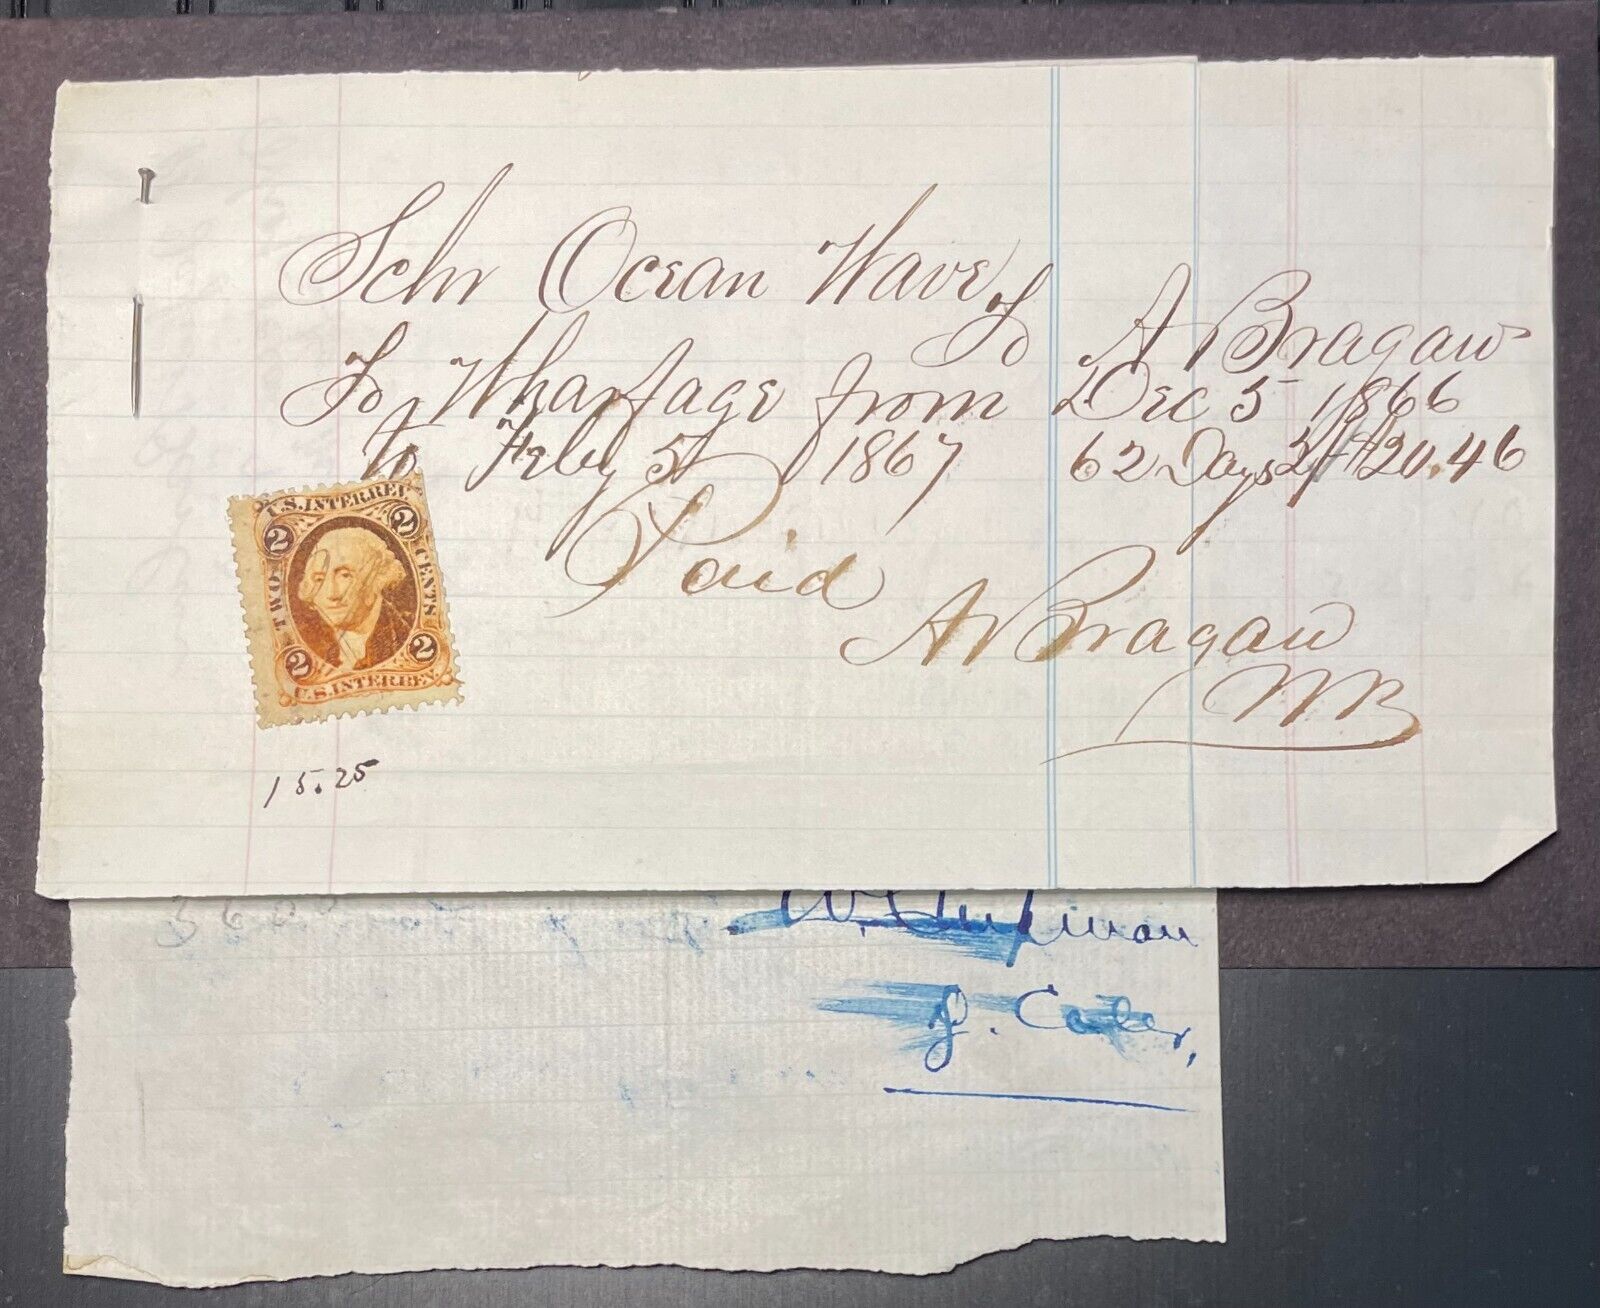 Schr Ocean Wave
To A Bragaw
To Wharfage from Dec 5 1866
to Feby 5 1867 62 Days $20.46
Paid
A Bragaw
U.S. INTER. REV.
2 2
TWO CENTS
2 2
U.S. INTER. REV.
15.25
J.